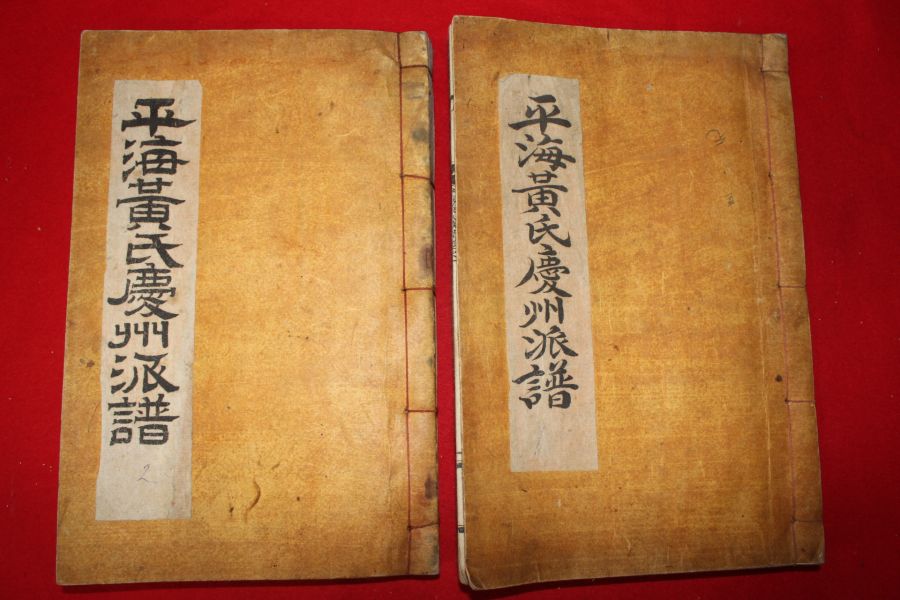 平海黃氏慶州派譜
2
平海黃氏慶州派譜